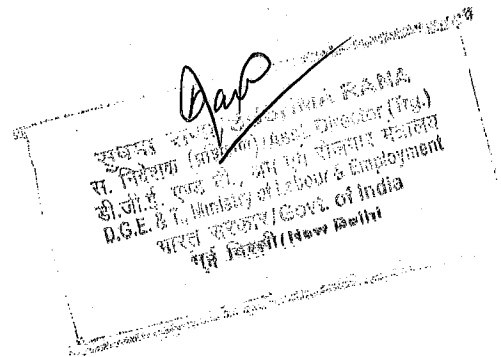 राणा RANA
स. निदेशक (प्रशि०)/Asst. Director (Trg.)
डी.जी.ई. एण्ड टी., श्रम एवं रोजगार मंत्रालय
D.G.E. & T., Ministry of Labour & Employment
भारत सरकार/Govt. of India
नई दिल्ली/New Delhi